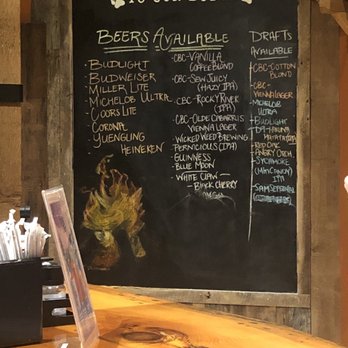 Beers Available
- Budlight
- Budweiser
- Miller Lite
- Michelob Ultra
- Coors Lite
- Corona
- Yuengling
- Heineken
- CBC-Vanilla
Coffee Blond
- CBC-Sew Juicy
(Hazy IPA)
- CBC-Rocky River
(IPA)
- CBC-Olde Cabarrus
Vienna Lager
- Wicked Weed Brewing
Pernicious (IPA)
- Guinness
- Blue Moon
- White Claw -
Black Cherry
Drafts
Available
- CBC-Cotton
Blond
- CBC-
Vienna Lager
- Michelob
Ultra
- Budlight
- Red Oak
- Angry Orch.
- Sycamore
IPA
- Sam Seasonal